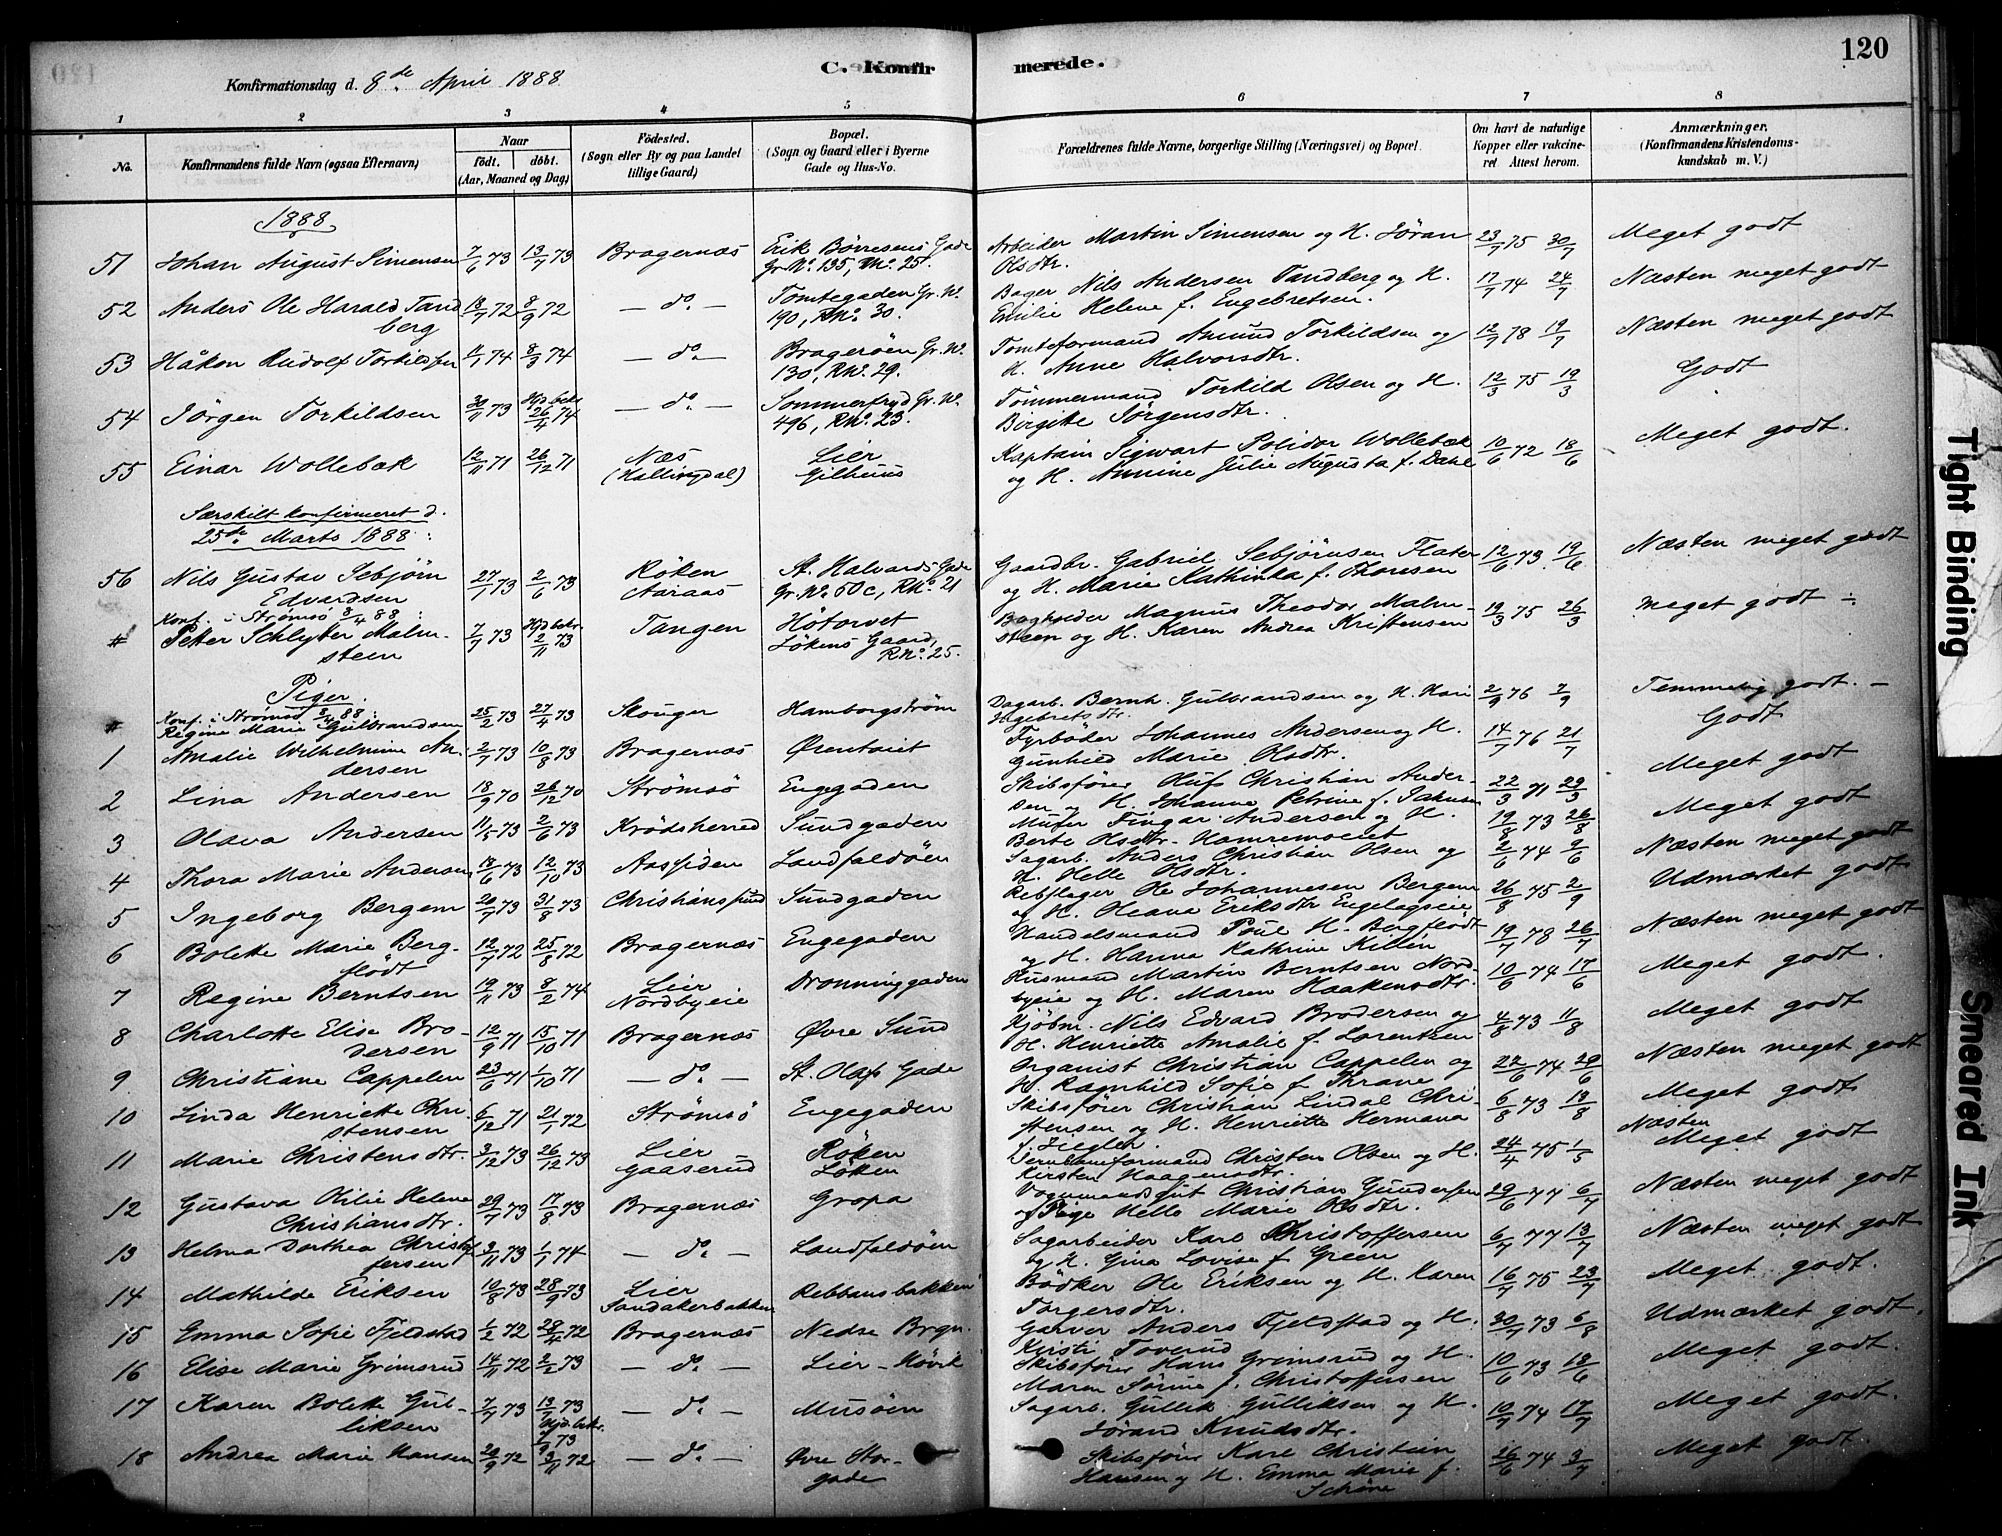 120
C. Konfirmerede.
Konfirmationsdag d. 8de April 1888
1 2 3 4 5 6 7 8
No.
Konfirmandens fulde Navn (ogsaa Efternavn)
Naar
födt. döbt.
(Aar, Maaned og Dag)
Födested.
(Sogn eller By og paa Landet
tillige Gaard)
Bopæl.
(Sogn og Gaard eller i Byerne
Gade og Hus-No.
Forældrenes fulde Navne, borgerlige Stilling (Næringsvei) og Bopæl.
Om havt de naturlige
Kopper eller vakcine-
ret Attest herom.
Anmærkninger.
(Konfirmandens Kristendoms-
kundskab m. V.)
1888
51 Johan August Simensen 7/6 73 13/7 73 Bragernæs Erik Börresens Gade Arbeider Martin Simensen og H. Jöran 23/7 75 30/7 Meget godt
Gr. No. 135, RNo. 25. Olsdtr.
52 Anders Ole Harald Tand 18/7 72 8/9 72 — do. — Tomtegaden Gr. N. Bager Nils Andersen Tandberg og H. 17/7 74 24/7 Næsten meget godt
berg 190, RNo. 30. Emilie Helene f. Engebretsen.
53 Håkon Rudolf Torkildsen 11/1 74 8/3 74 — do. — Brageröen Gr. N. Tomteformand Amund Torkildsen og 12/7 78 19/7 Næsten meget godt
130, RN. 29. H. Anne Halvorsdtr.
54 Jörgen Torkildsen 30/11 73 Hjd. bekr. 26/4 74 — do. — Sommerfryd Gr. N. Tömmermand Torkild Olsen og H. 12/3 75 19/3 Godt
496, RNo. 23. Birgitte Jörgensdtr.
55 Einar Wollebæk 12/11 71 26/12 71 Næs Lier Kaptein Sigwart Polidor Wollebæk 10/6 72 18/6 Meget godt.
(Hallingdal) Gilhuus og H. Annine Julie Augusta f. Dahl
Særskilt konfirmeret d.
25de Marts 1888:
56 Nils Gustav Sebjörn 27/1 73 2/6 73 Röken St. Halvards Gade Gaardbr. Gabriel Sebjörnsen Flater 12/6 73 19/6 Næsten meget godt
Edvardsen Aaraas Gr. No. 50c, RNo. 21 og H. Marie Kathinka f. Thoresen
Konf. i Strömsö 8/4 88:
# Peter Schlyter Malm- 7/7 73 Hjd. bekr. 2/11 73 Tangen Hötorvet Magnus Theodor Malm- 19/3 75 26/3 Meget godt
steen Lökens Gaard, RNo. 25. steen og H. Karen Andrea Kristensen
Piger.
Konf. i Strömsö 8/4 88:
# Regine Marie Gulbrandsen 25/2 73 27/4 73 Skouger Hamborgström Dagarb. Bernh. Gulbrandsen og H. Kari 2/9 76 7/9 Temmelig godt. —
Ingebretsdtr.
1 Amalie Wilhelmine An- 2/7 73 10/8 73 Bragernæs Örentoiet Fyrböder Johannes Andersen og H. 14/7 76 21/7 Godt
dersen Gunhild Marie Olsdtr.
2 Lina Andersen 18/9 70 26/12 70 Strömsö Engegaden Skibsförer Oluf Christian Ander- 22/3 71 29/3 Meget godt
sen og H. Johanne Petrine f. Jahnsen
3 Olava Andersen 11/5 73 2/6 73 Krödsherred Sundgaden Murer Fingar Andersen og H. 19/8 73 26/8 Meget godt
Berte Olsdtr. Hamremoeiet
4 Thora Marie Andersen 18/6 73 12/10 73 Aassiden Landfaldöen Sagarb. Anders Christian Olsen og 2/6 74 9/6 Næsten meget godt
H. Helle Olsdtr.
5 Ingeborg Bergem 20/7 73 31/8 73 Christianssund Sundgaden Rebslager Ole Johannesen Bergem 26/8 75 2/9 Udmærket godt
og H. Oleana Eriksdtr Engelagseie
6 Bolette Marie Berg- 12/7 72 25/8 72 Bragernæs Engegaden Handelsmand Poul H. Bergflödt 19/7 78 26/7 Næsten meget godt
flödt og H. Hanna Kathrine Killin
7 Regine Berntsen 19/11 73 8/2 74 Lier Dronninggaden Husmand Martin Berntsen Nord- 10/6 74 17/6 Meget godt.
Nordbyeie byeie og H. Maren Haakensdtr.
8 Charlotte Elise Bro- 12/9 71 15/10 71 Bragernæs Övre Sund Kjöbm. Nils Edvard Brodersen og 4/8 73 11/8 Meget godt
dersen H. Henriette Amalie f. Lorentzen
9 Christiane Cappelen 23/6 71 1/10 71 — do. — St. Olafs Gade Organist Christian Cappelen og 22/6 74 29/6 Næsten meget godt
H. Ragnhild Sofie f. Thrane
10 Linda Henriette Chri- 6/12 71 21/1 72 Strömsö Engegaden Skibsförer Christian Lindal Chri- 6/8 73 13/8 Meget godt
stensen stensen og H. Henriette Hermana f. Ziegler.
11 Marie Christensdtr. 3/12 73 26/12 73 Lier Röken Christen Olsen og H. 24/4 75 1/5 Næsten Meget godt
Gaaserud Löken Kirsten Haagensdtr.
12 Gustava Otilie Helene 29/7 73 17/8 73 Bragernæs Gropa Christian Gundersen 29/6 77 6/7 Næsten meget godt
Christiansdtr. og Pige Helle Marie Olsdtr.
13 Helma Dorthea Christof 3/11 73 1/1 74 — do. — Landfaldöen Sagarbeider Karl Christoffersen 6/7 77 13/7 Næsten meget godt
fersen og H. Gina Lovise f. Green
14 Mathilde Eriksen 10/8 73 28/9 73 Lier Rebbansbakken Bödker Ole Eriksen og H. Karen 16/7 75 23/7 Meget godt.
Sandakerbakken Torgersdtr.
15 Emma Sofie Fjeldstad 1/2 72 28/4 72 Bragernæs Nedre Brgn. Garver Anders Fjeldstad og H. 30/7 73 6/8 Udmærket godt.
Kirsti Toverud
16 Elise Marie Grimsrud 14/11 72 2/2 73 — do. — Lier - Hövik Skibsförer Hans Grimsrud og H. 10/6 73 18/6 Meget godt.
Maren Sörine f. Christoffersen
17 Karen Bolette Gul- 7/7 73 13/7 73 — do. — Musöen Sagarb. Gullik Gulliksen og H. 10/7 74 17/7 Meget godt.
liksen Hjd. bekr. 73 Jörand Knudsdtr.
18 Andrea Marie Hansen 20/9 72 3/11 72 — do. — Övre Stor- Skibsförer Karl Christian 26/6 74 3/7 Meget godt.
gade Hansen og H. Emma Marie f.
Schöne
Tight Binding
Smeared Ink